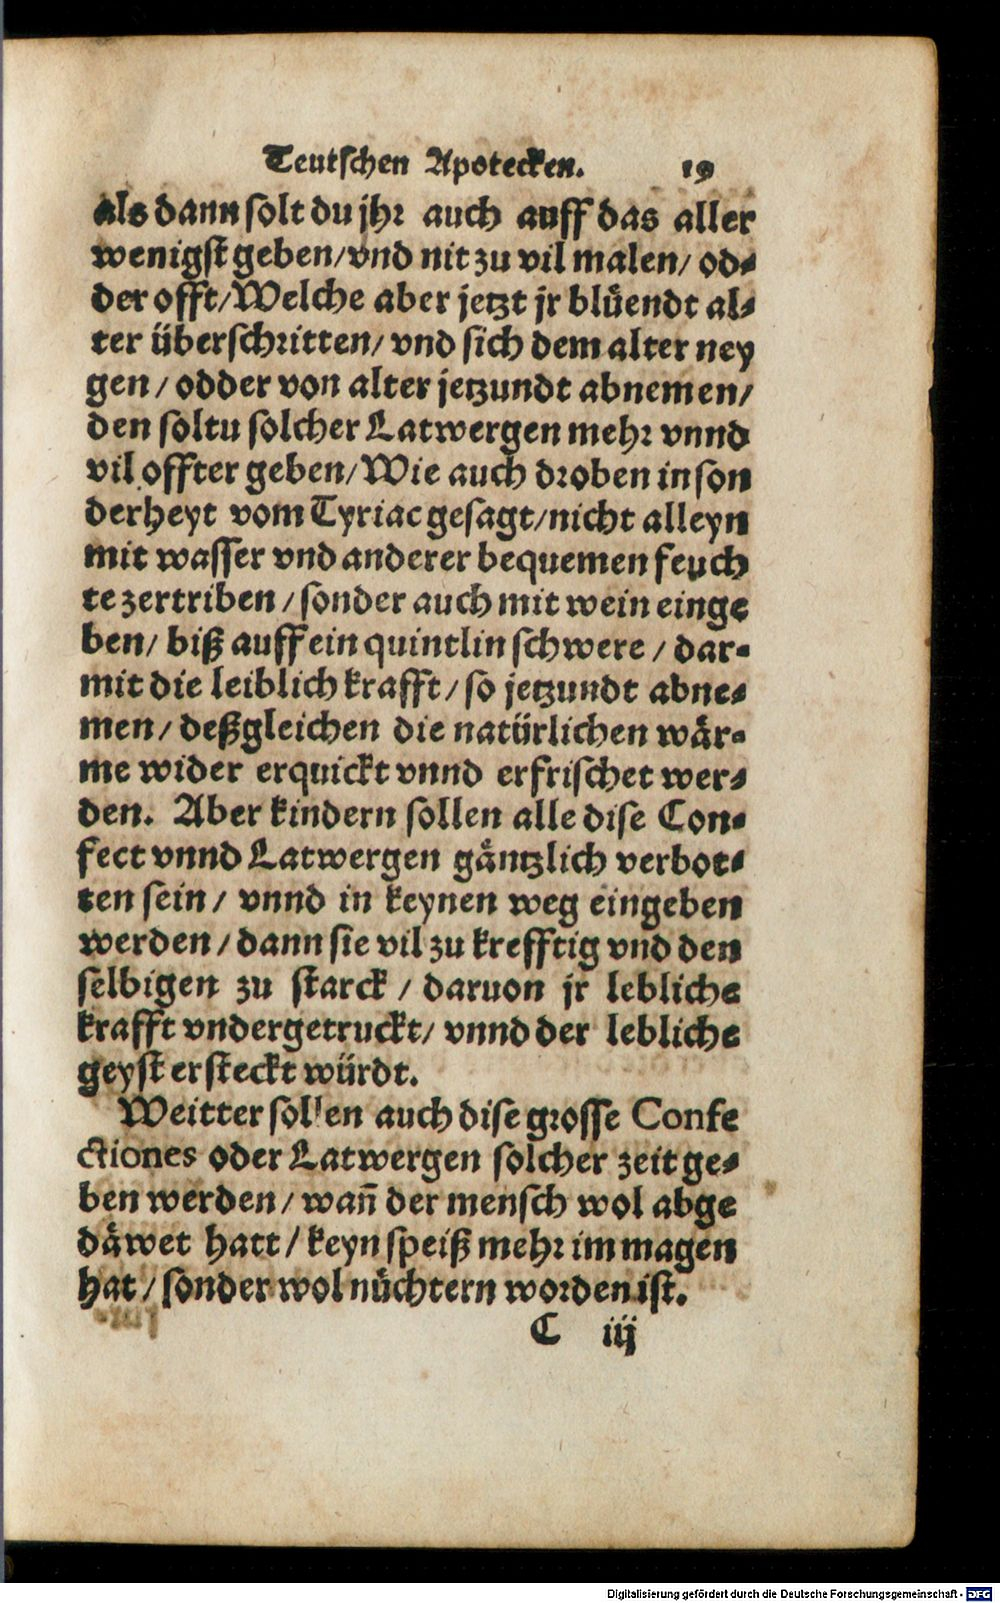 Teutschen Apotecken. 19
als dann solt du jhr auch auff das aller
wenigst geben/vnd nit zu vil malen/ od⸗
der offt/Welche aber jetzt jr blüendt al⸗
ter überschritten/ vnd sich dem alter ney
gen/ odder von alter jetzundt abnemen/
den soltu solcher Latwergen mehr vnnd
vil offter geben/Wie auch droben in son
derheyt vom Tyriac gesagt/nicht alleyn
mit wasser vnd anderer bequemen feuch
te zertriben/ sonder auch mit wein einge
ben/ biß auff ein quintlin schwere/ dar⸗
mit die leiblich krafft/ so jetzundt abne⸗
men/ deßgleichen die natürlichen wär⸗
me wider erquickt vnnd erfrischet wer⸗
den. Aber kindern sollen alle dise Con⸗
fect vnnd Latwergen gäntzlich verbot⸗
ten sein/ vnnd in keynen weg eingeben
werden/ dann sie vil zu krefftig vnd den
selbigen zu starck/ daruon jr lebliche
krafft vndergetruckt/ vnnd der lebliche
geyst ersteckt würdt.
Weitter sollen auch dise grosse Confe
ctiones oder Latwergen solcher zeit ge⸗
ben werden/ wañ der mensch wol abge
däwet hatt/ keyn speiß mehr im magen
hat/ sonder wol nüchtern worden ist.
C iij
Digitalisierung gefördert durch die Deutsche Forschungsgemeinschaft - DFG